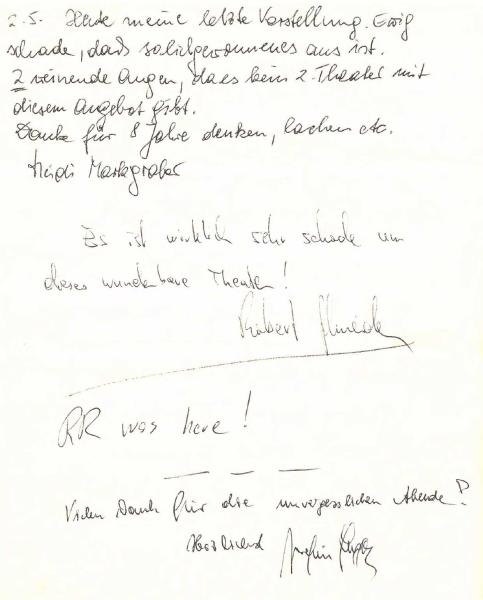 2.5. Heute meine letzte Vorstellung. Ewig
schade, daß so liebgewonnenes aus ist.
2 weinende Augen, dass kein 2. Theater mit
diesem Angebot gibt.
Danke für 8 Jahre denken, lachen etc.
Heidi
Es ist wirklich sehr schade um
dieses wunderbare Theater!
Robert
RR was here!
Vielen Dank für die unvergesslichen Abende!
Herzlichst